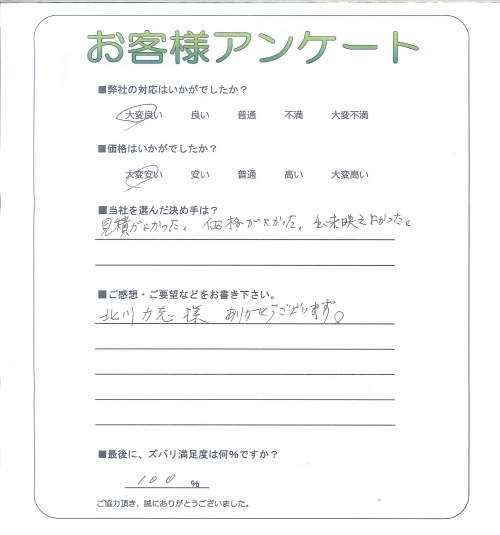 お客様アンケート
■弊社の対応はいかがでしたか？
大変良い 良い 普通 不満 大変不満
■価格はいかがでしたか？
大変安い 安い 普通 高い 大変高い
■当社を選んだ決め手は？
見積がよかった。価格がよかった。出来映えよかった。
■ご感想・ご要望などをお書き下さい。
北川 様 ありがとうございます。
■最後に、ズバリ満足度は何％ですか？
100 %
ご協力頂き、誠にありがとうございました。